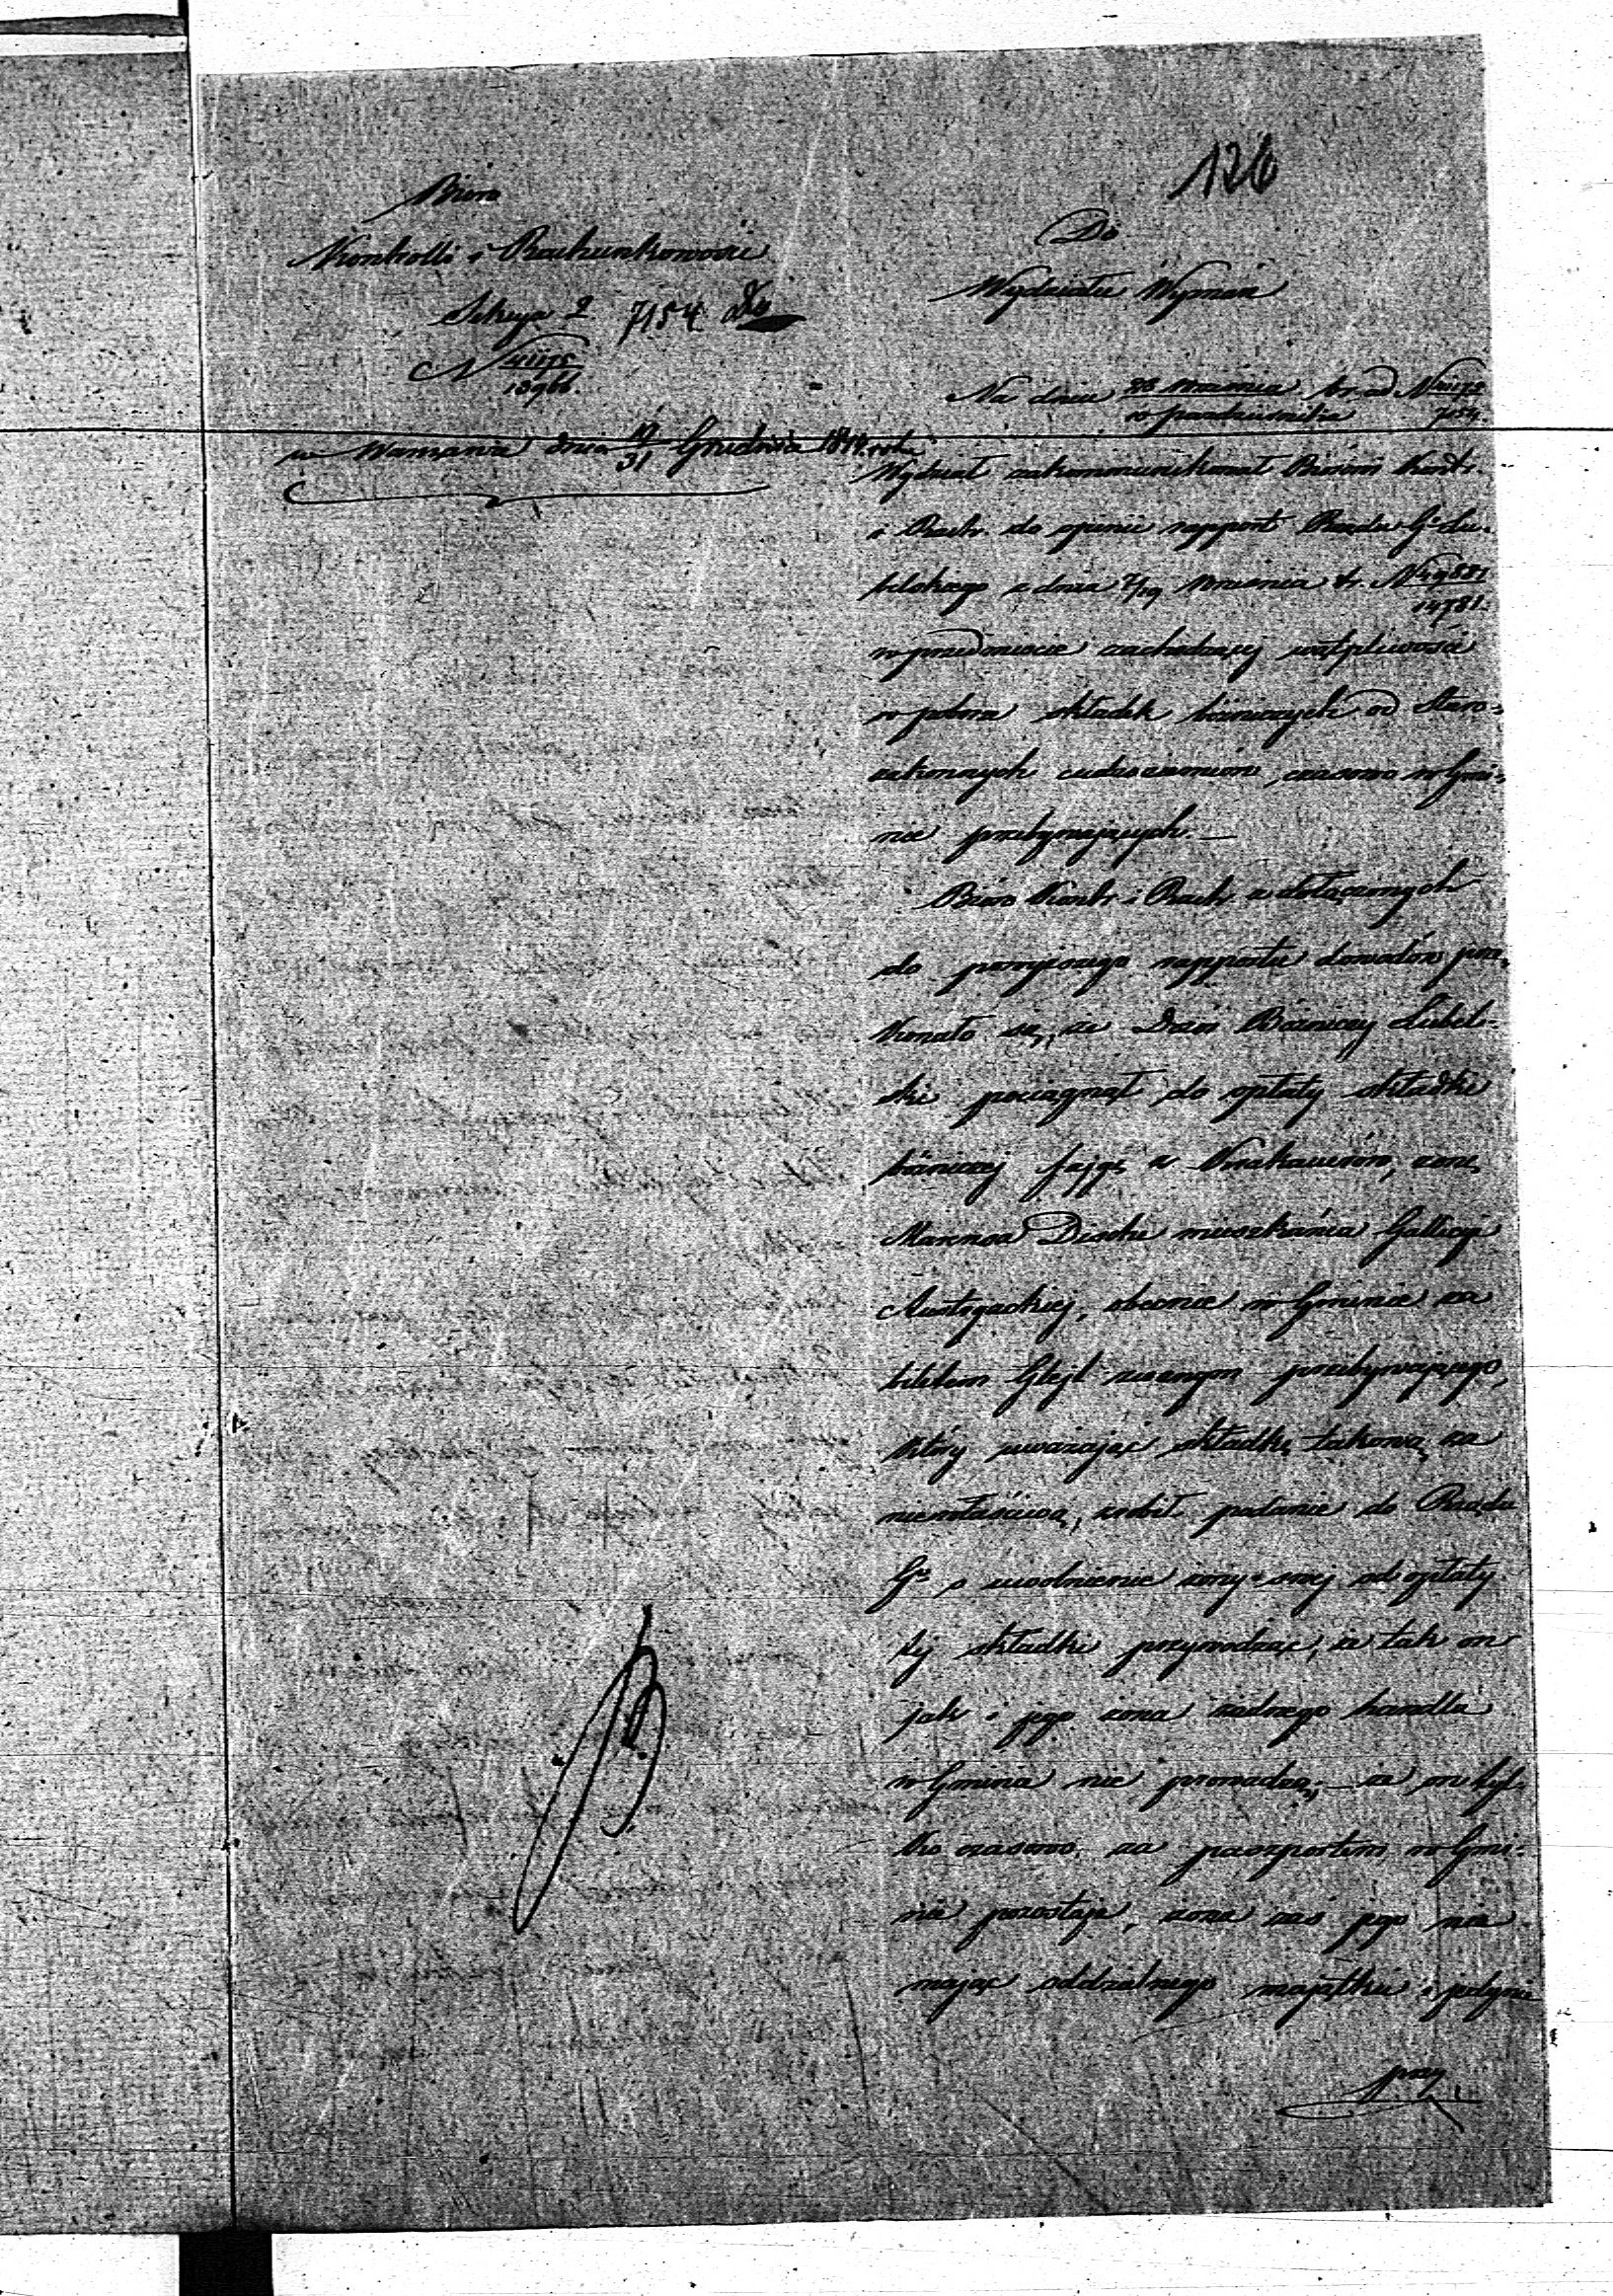 126
Biuro
Kontrolli i Rachunkowości
Sekcya 2 7154
N 41175/13966.
w Warszawie dnia 19/31 Grudnia 184 roku
Do
Wydziału Wyznań
Na dniu Września / Października br. ad N 41175/7154
Wydział zakommunikował Biurowi Kontr.
i Rach. do opinii rapport Rządu Go Lu-
belskiego z dnia 7/19 Września br. N 49881/14781.
w przedmiocie zachodzącej wątpliwości
w poborze składek bóżniczych od Staro-
zakonnych cudzoziemców, czasowo w Gmi-
nie przebywających.—
Biuro Kontr. i Rach. z dołączonych
do powyższego rapportu dowodów prze-
konało się, że Dozór Bóżniczy Lubel-
ski pociągnął do opłaty składki
bóżniczej Fajgę z Krakauerów, żonę
Marcusa Dische mieszkańca Gallicyi
Austryackiej, obecnie w Gminie za
biletem Glejt zwanym przebywającego,
który uważając składkę takową za
niewłaściwą, zrobił podanie do Rządu
Go o uwolnienie żony swej od opłaty
tej składki przywodząc, że tak on
jak i jego żona żadnego handlu
w Gminie nie prowadzą;— że on tyl-
ko czasowo za paszportem w Gmi-
nie pozostaje, żona zaś jego nie
mając oddzielnego majątku i jedynie
przy